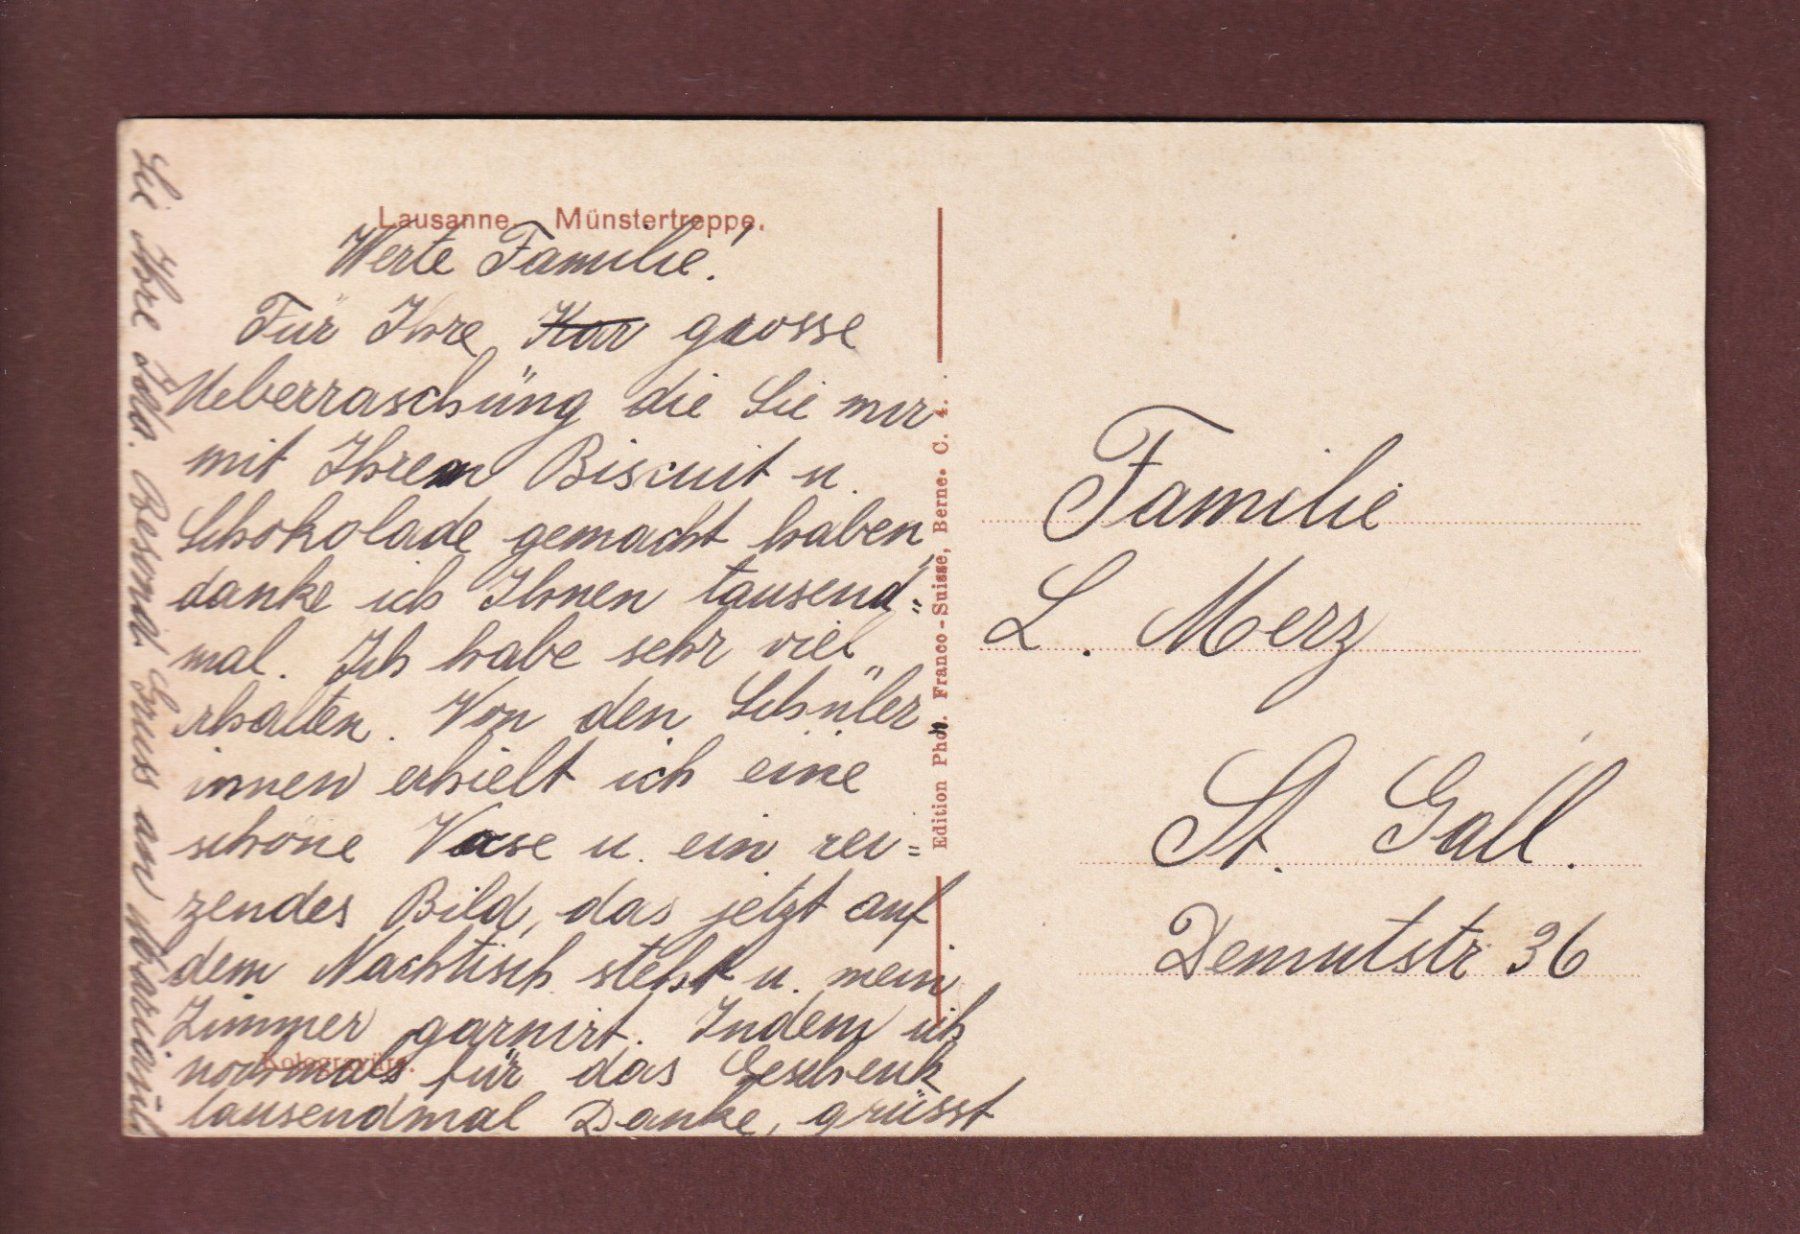 Lausanne. Münstertreppe.
Werte Familie!
Für Ihre Kar grosse
Ueberraschüng die Sie mir
mit Ihrem Biscuit u.
Schokolade gemacht haben,
danke ich Ihnen tausend=
mal. Ich habe sehr viel
erhalten. Von den Schüler
innen erhielt ich eine
schöne Vase u. ein rei=
zendes Bild, das jetzt auf
dem Nachtisch steht u. mein
Zimmer garnirt. Indem ich
nochmals für das Geschenk
tausendmal Danke, grüsst
Sie Ihre Ida. Besond. Gruss an
Kologravüre.
Edition Phot. Franco-Suisse, Berne. C. 4.
Familie
L. Merz
St. Gall.
Demutstr 36